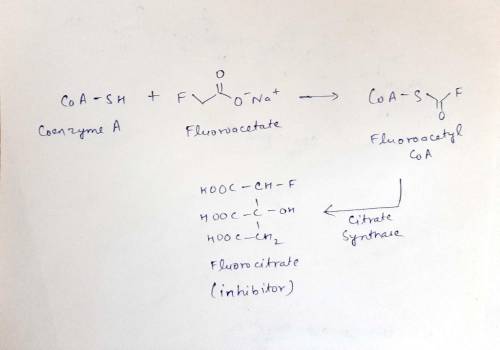 CoA-SH + F O O⁻Na⁺ → CoA-S F O
Coenzyme A Fluoroacetate Fluoroacetyl CoA
Citrate Synthase
HOOC-CH-F
HOOC-C-OH
HOOC-CH₂
Fluorocitrate
(inhibitor)